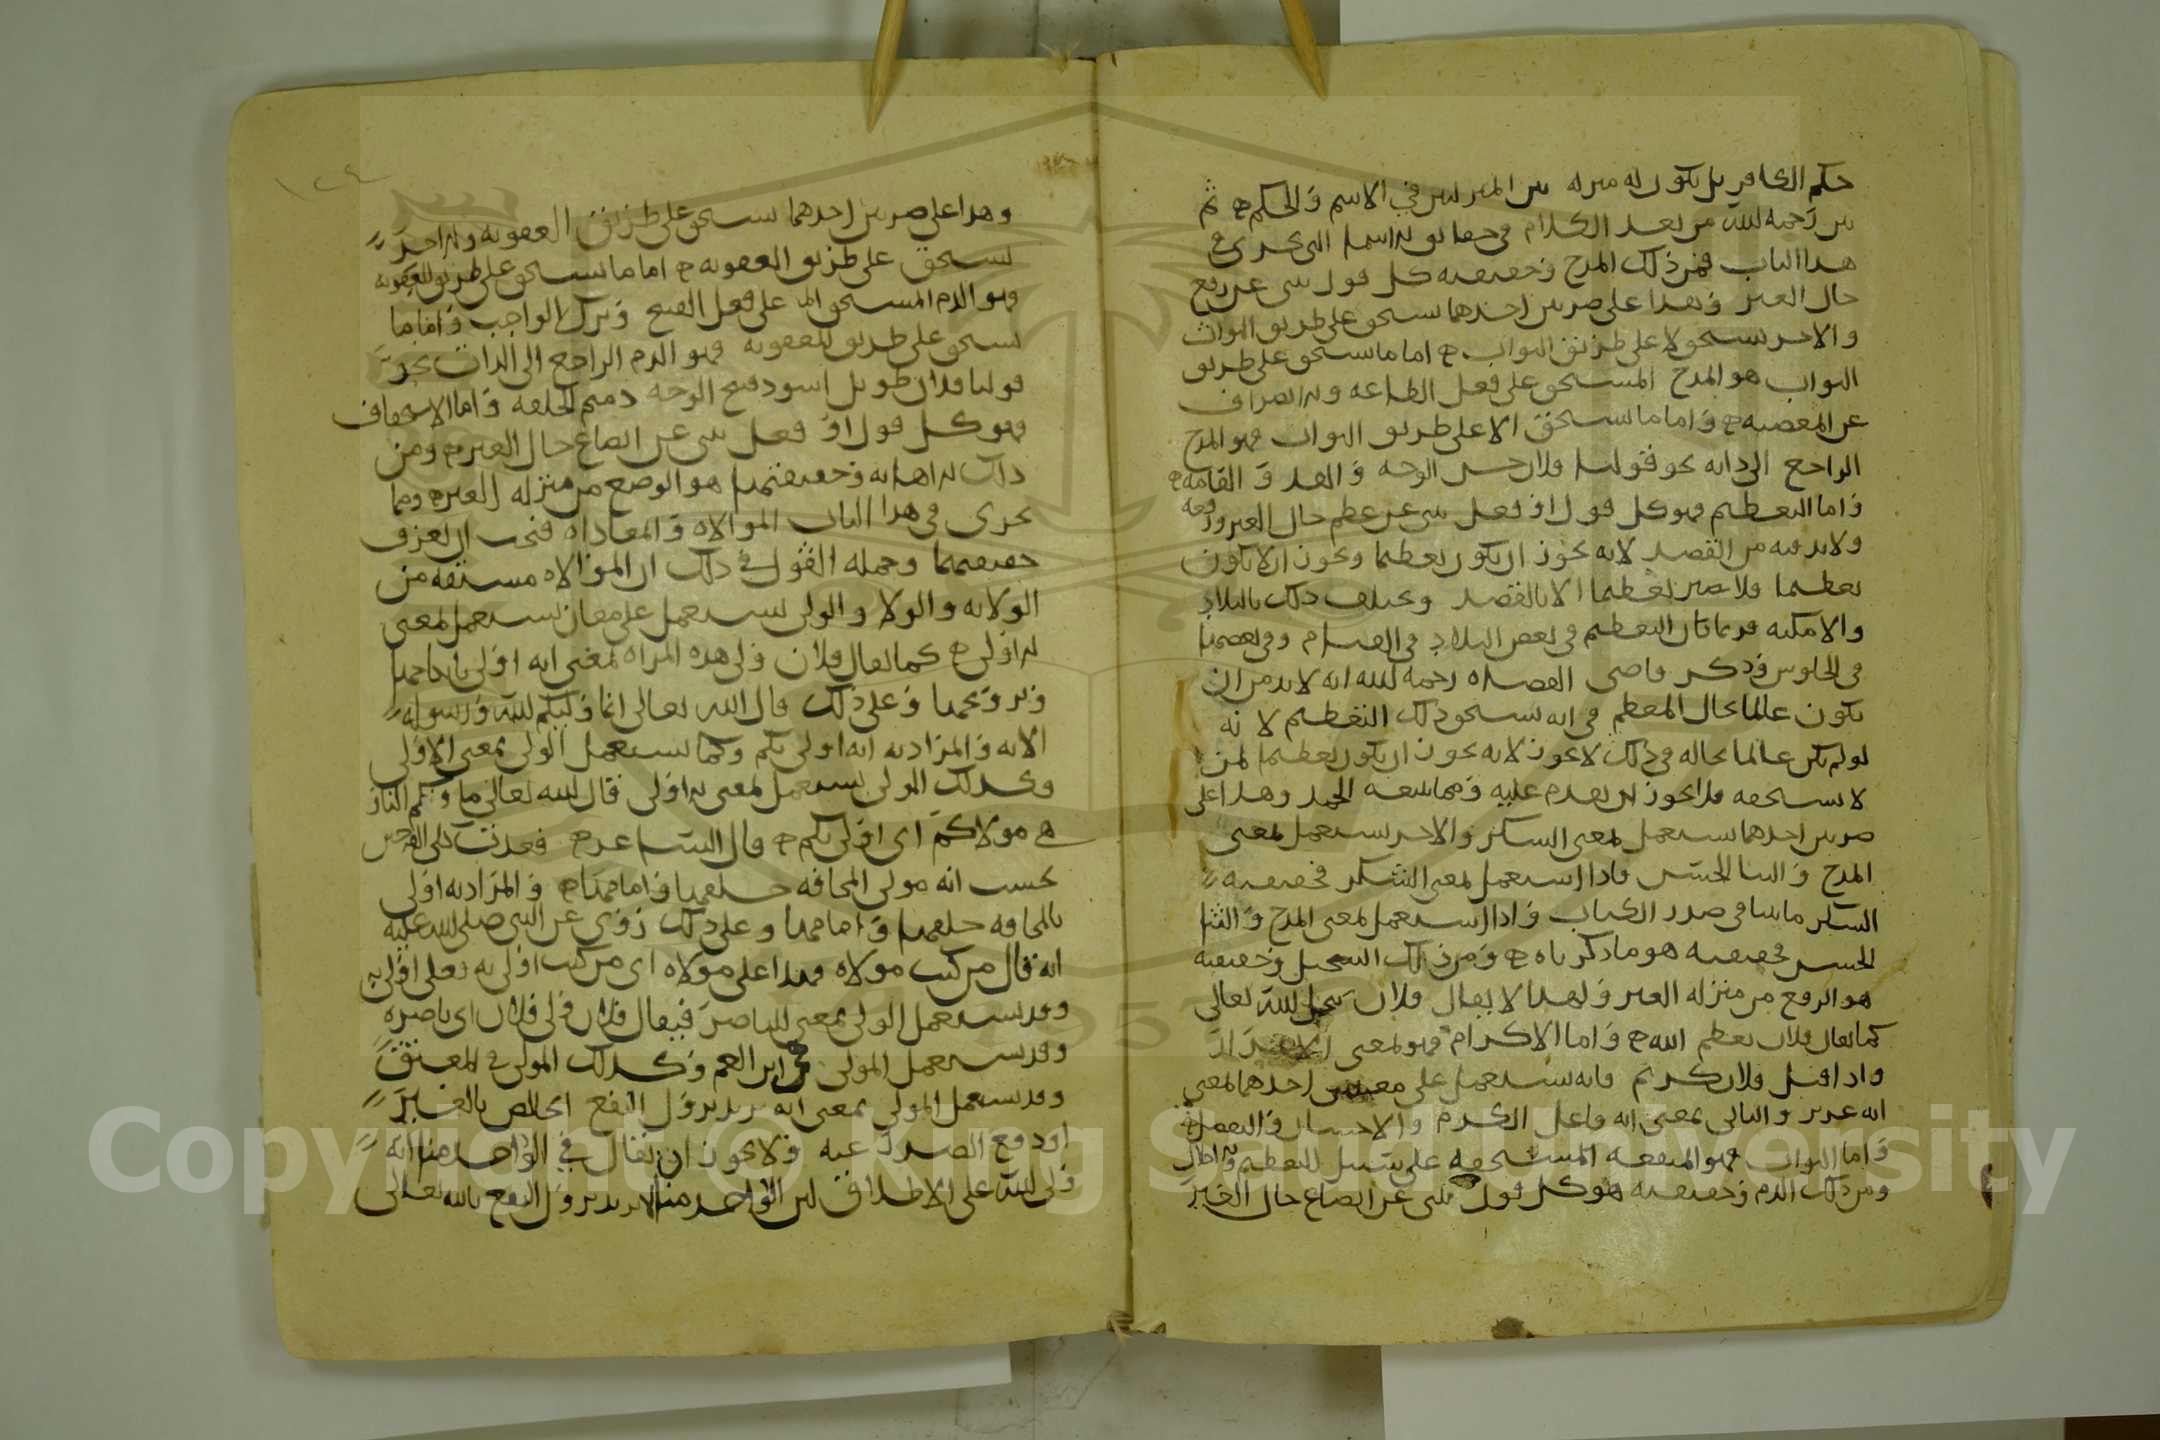 حكم الكافر بل تكون له منزلة بين المنزلتين في الاسم والحكم ثم
بين رحمه الله من بعد الكلام في حقائق الاسما التي تجري في
هذا الباب فمن ذلك المدح وحقيقته كل قول ينبي عن رفع
حال الغير وهذا على ضربين احدهما يستحق على طريق الثواب
والاخر يستحق لا على طريق الثواب اما ما يستحق على طريق
الثواب هو المدح المستحق على فعل الطاعة والانصراف
عن المعصية واما ما يستحق الا على طريق الثواب فهو المدح
الراجع الى ذاته نحو قولنا فلان حسن الوجه و القد و القامه
واما التعظيم فهو كل قول او فعل ينبي عن عظم حال الغير ورفعه
ولابد فيه من القصد لانه يجوز ان يكون تعظيما ويجوز ان لا يكون
تعظيما ولا يصير تعظيما الا بالقصد ويختلف ذلك بالبلاد
والامكنه فربما كان التعظيم في بعض البلاد في القيام وفي بعضها
في الجلوس وذكر قاضي القضاه رحمه الله انه لا بد من ان
يكون عالما بحال المعظم في انه يستحق ذلك التعظيم لانه
لو لم يكن عالما بحاله في ذلك لا يجوز لانه يجوز ان يكون تعظيما لمن
لا يستحقه فلا يجوز ان يقدم عليه ومما يتبعه الحمد وهذا على
ضربين احدهما يستعمل لمعنى الشكر والاخر يستعمل لمعنى
المدح و الثنا الحسن فاذا استعمل لمعنى الشكر فحقيقته
الشكر ما بينا في صدر الكتاب واذا استعمل لمعنى المدح والثنا
الحسن فحقيقته هو ما ذكرناه ومن ذلك التبجيل وحقيقته
هو الرفع من منزله الغير ولهذا لا يقال فلان يبجل الله تعالى
كما يقال فلان يعظم الله واما الاكرام فهو لمعنى
واذا قيل فلان كريم فانه يستعمل على معنيين احدهما لمعنى
انه عزيز والثاني بمعنى انه فاعل الكرم والاحسان و
واما الثواب فهو المنفعه المستحقه على سبيل التعظيم والاجلال
ومن ذلك الذم وحقيقته هو كل قول ينبي عن اتضاع حال الغير
وهذا على ضربين احدهما يستحق على طريق العقوبه والاخر
لا يستحق على طريق العقوبه اما ما يستحق على طريق العقوبه
فهو الذم المستحق على فعل القبيح وترك الواجب واما ما
يستحق على طريق العقوبه فهو الذم الراجع الى الذات نحو
قولنا فلان طويل اسود قبيح الوجه دميم الخلقه واما الاستخفاف
فهو كل قول او فعل ينبي عن اتضاع حال الغير ومن
ذلك الاهانه وحقيقتها هو الوضع من منزله الغير ومما
يجري في هذا الباب الموالاه والمعاداه فيجب ان نعرف
حقيقتهما وجمله القول في ذلك ان الموالاه مشتقه من
الولايه والولا والولي يستعمل على معان يستعمل لمعنى
الاولى كما يقال فلان ولي هذه المراه لمعنى انه اولى بانكاحها
وتزويجها وعلى ذلك قال الله تعالى انما وليكم الله ورسوله
الايه والمراد به انه اولى بكم وكما يستعمل الولي بمعنى الاولى
وكذلك المولى يستعمل لمعنى الاولى قال الله تعالى ماويكم النار
هي مولاكم اي اولى بكم قال الشاعر فغدت كلى الفرجين
تحسب انه مولى المخافه خلفها وامامها والمراد به اولى
بالمخافه خلفها وامامها وعلى ذلك روي عن النبي صلى الله عليه
انه قال من كنت مولاه فهذا علي مولاه اي من كنت اولى به فعلي اولى به
وقد يستعمل الولي بمعنى الناصر فيقال فلان ولي فلان اي ناصره
وقد يستعمل المولى ابن العم وكذلك المولى في المعتق
وقد يستعمل المولى بمعنى انه يريد نزول النفع الخالص بالغير
او دفع الضرر عنه ولا يجوز ان يقال في الواحد منا انه
ولي الله على الاطلاق لان الواحد منا لا يريد نزول النفع بالله تعالى